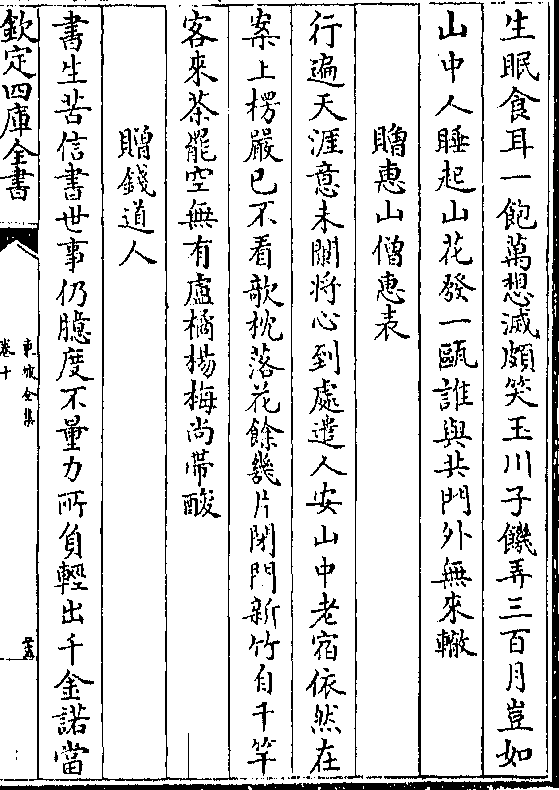 生眠食耳一飽萬想滅頗笑玉川子饑弄三百月豈如
山中人睡起山花發一甌誰與共門外無來轍
贈惠山僧惠表
行遍天涯意未闌將心到處遣人安山中老宿依然在
案上楞嚴已不看欹枕落花餘幾片閉門新竹自千竿
客來茶罷空無有盧橘楊梅尚帶酸
贈錢道人
書生苦信書世事仍臆度不量力所負輕出千金諾當
欽定四庫全書
東坡全集
卷十